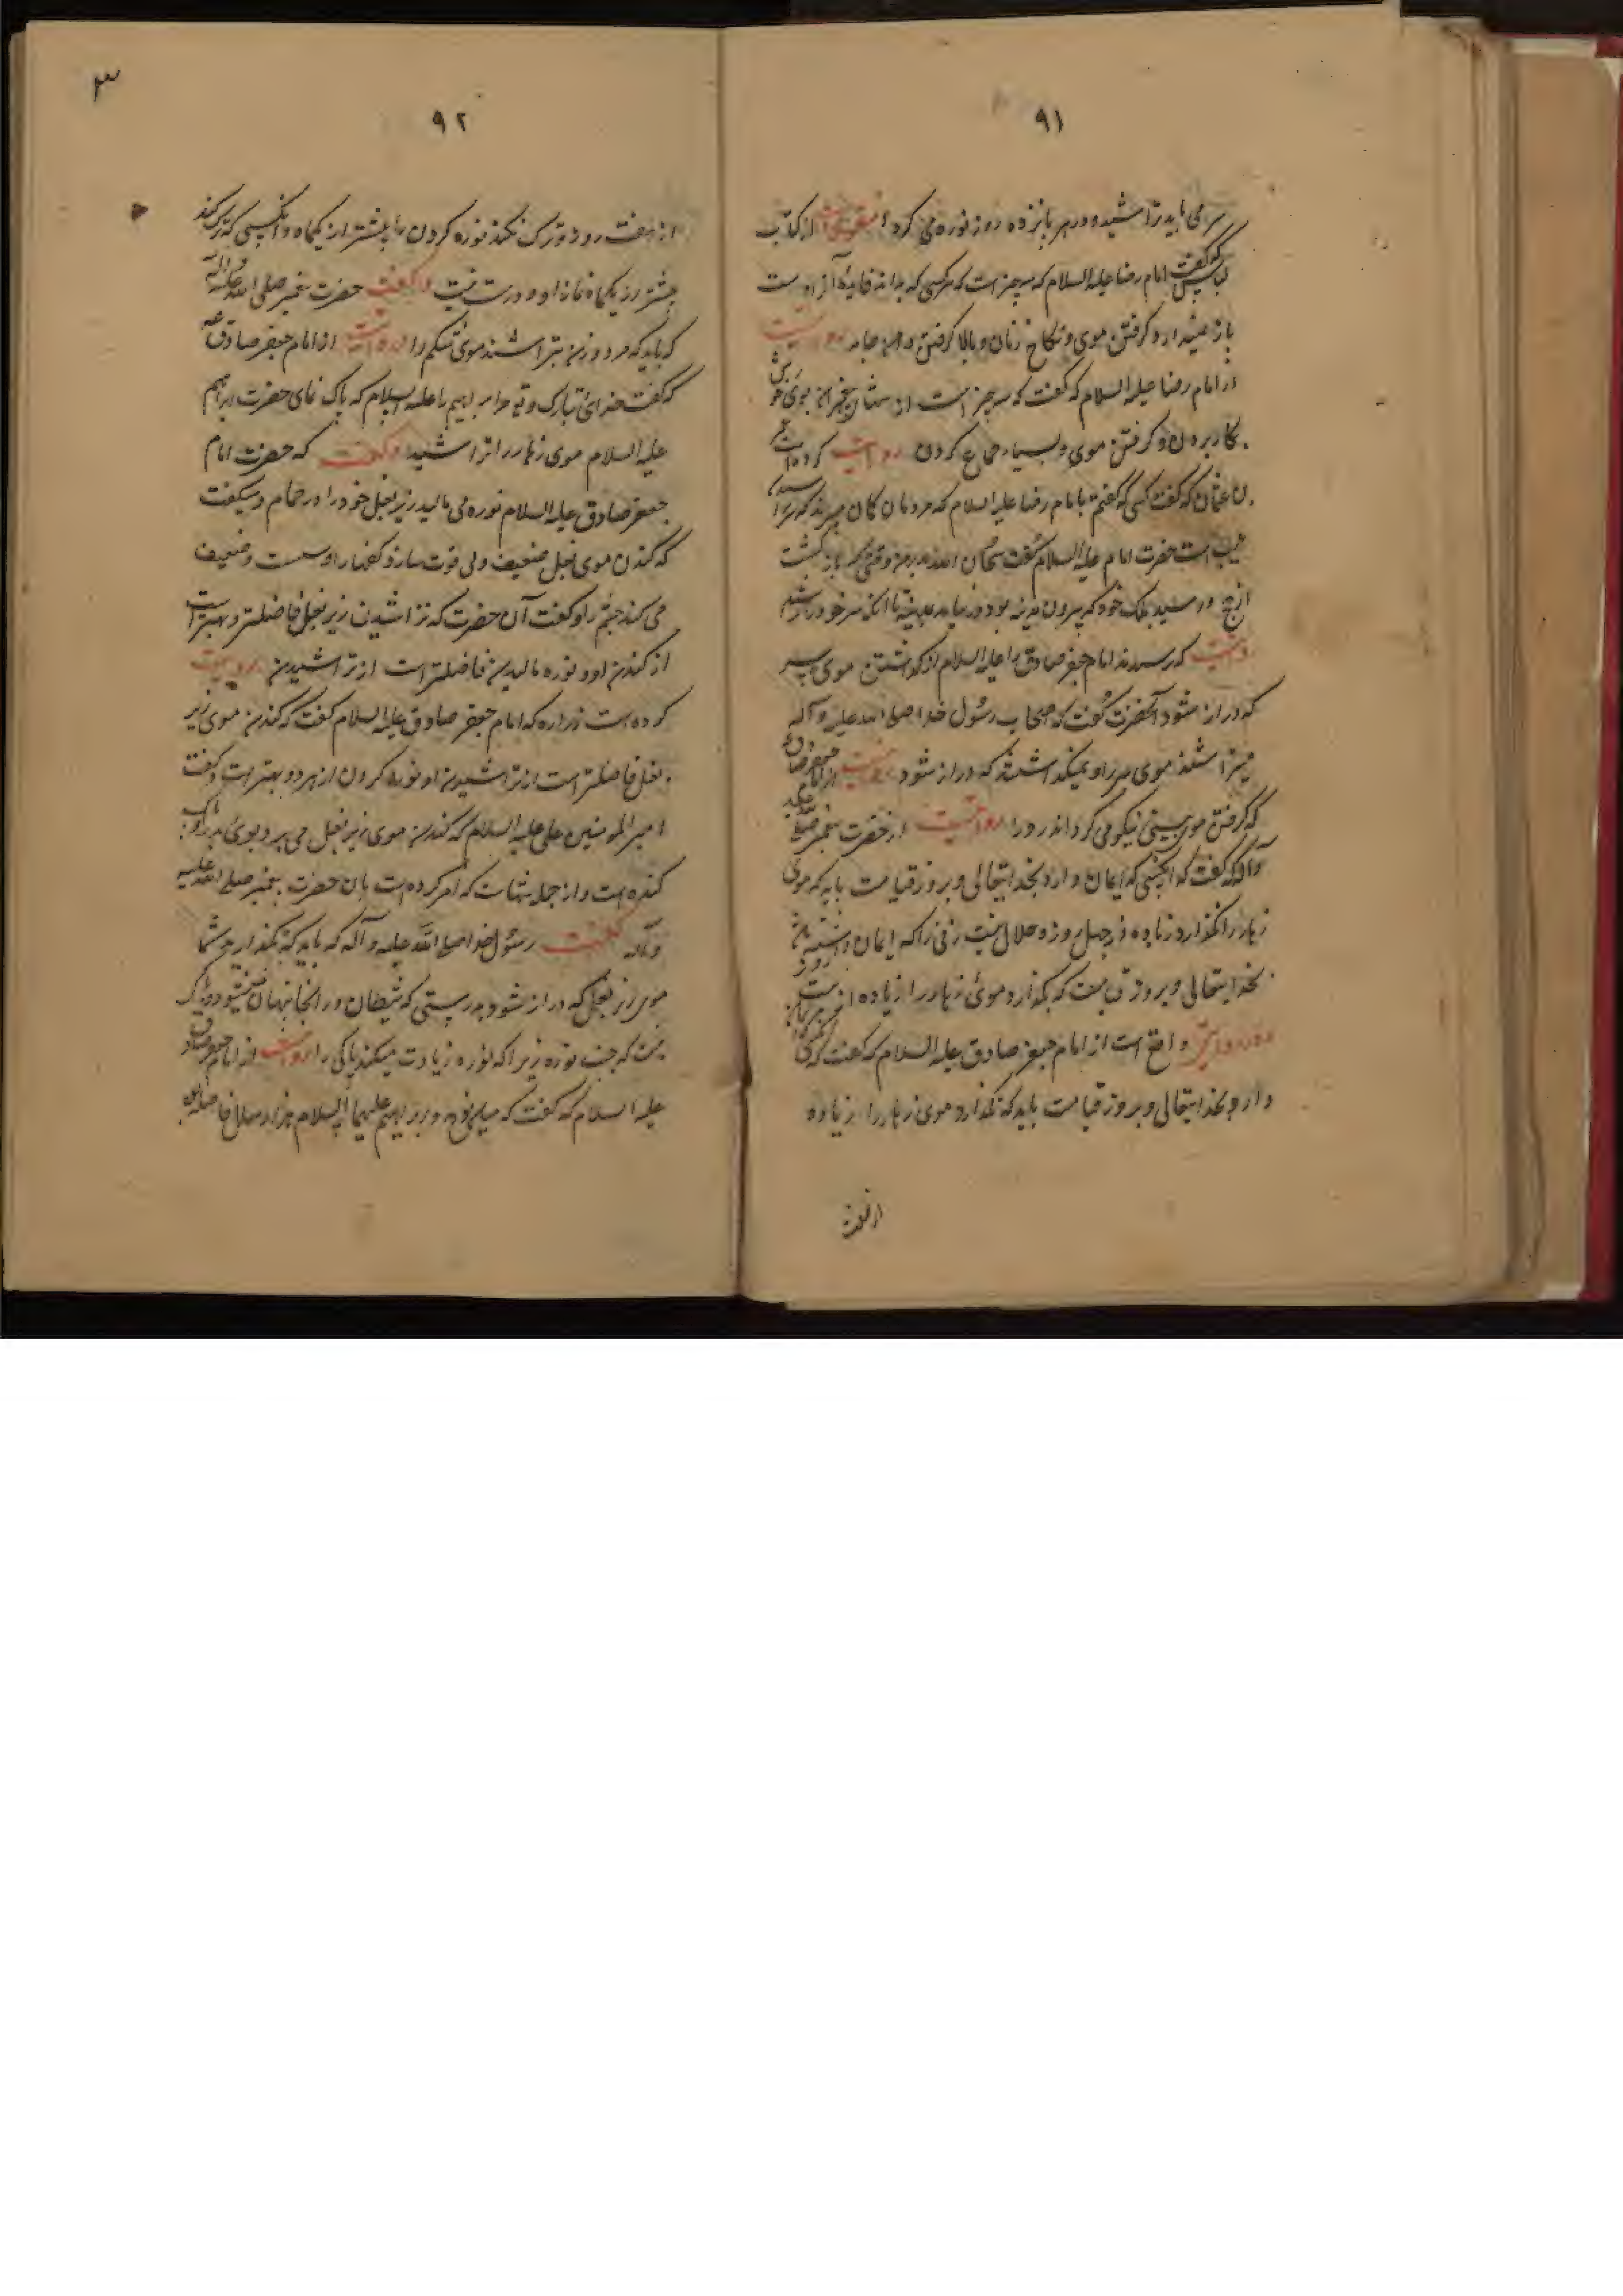 ۹۱
سر می باید تراشید و در هر پانزده روز نوره می کرد از کتاب
لباس که گفت امام رضا علیه السلام که سه چیز است که هر کسی که بداند فایده آنرا دست
باز نمیدارد گرفتن موی و نکاح زنان و بالا گرفتن دامن جامه روایت
از امام رضا علیه السلام که گفت که سه چیز است از سنتهای پیغمبران بوی خوش
بکار بردن و گرفتن موی و بسیار جماع کردن روایت کرده است
که گفت کسی که گفتم با امام رضا علیه السلام که مردمان گمان میبرند که
است حضرت امام علیه السلام گفت سبحان الله پدر من وقتی که باز گشت
از حج و رسید بملک خود که بیرون مدینه بود در نیامد بمدینه تا آنکه سر خود تراشید
که پرسیدند امام جعفر صادق را علیه السلام از گذاشتن موی سر
که دراز شود آنحضرت گفت که اصحاب رسول خدا صلی الله علیه و آله
میتراشیدند موی سر را و نمیگذاشتند که دراز شود روایت از امام جعفر صادق
که گرفتن موی بینی نیکو می گرداند رو را روایتست از حضرت پیغمبر صلی الله علیه
و آله که گفت که آنکسی که ایمان دارد بخدایتعالی و بروز قیامت باید که موی
زهار را نگذارد زیاده از چهل روز و حلال نیست زنی را که ایمان داشته باشد
بخدایتعالی و بروز قیامت که بگذارد موی زهار را زیاده از بیست روز
و در روایت دیگر واقع است از امام جعفر صادق علیه السلام که گفت که
دارد بخدایتعالی و بروز قیامت باید که نگذارد موی زهار را زیاده
از هفت
۳
۹۲
از هفت روز و ترک نکند نوره کردن را بیشتر از یکماه و آنکسی که ترک کند
بیشتر از یکماه نماز او درست نیست و گفت حضرت پیغمبر صلی الله علیه و آله
که باید که مرد و زن بتراشند موی شکم را روایتست از امام جعفر صادق
که گفت خدای تبارک و تعالی مر ابراهیم را علیه السلام که پاک نمای حضرت ابراهیم
علیه السلام موی زهار را تراشید و گفت که حضرت امام
جعفر صادق علیه السلام نوره می مالید زیر بغل خود را در حمام و میگفت
که کندن موی بغل ضعیف و بی قوت سازد کتفها را و سست و ضعیف
می کند چشم را و گفت آن حضرت که تراشیدن زیر بغل فاضلتر و بهتر است
از کندن او و نوره مالیدن فاضلتر است از تراشیدن روایت
کرده است زراره که امام جعفر صادق علیه السلام گفت که کندن موی زیر
بغل فاضلتر است از تراشیدن او نوره کردن از هر دو بهتر است و گفت
امیر المومنین علی علیه السلام که کندن موی زیر بغل می برد بوی بد را و پاک
کننده است و از جمله سنتهاست که امر کرده است بان حضرت پیغمبر صلی الله علیه
و آله گفت رسول خدا صلی الله علیه و آله که باید که نگذارید شما
موی زیر بغل که دراز شود بدرستی که شیطان در آنجا پنهان میشود
نیست که جنب نوره زیرا که نوره زیادت میکند پاکی را روایتست از امام جعفر صادق
علیه السلام که گفت که میان نوح و ابراهیم علیهما السلام هزار سال فاصله بود